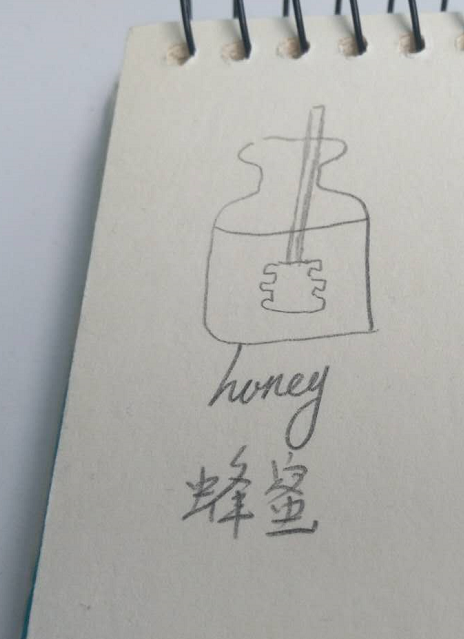 honey
蜂蜜